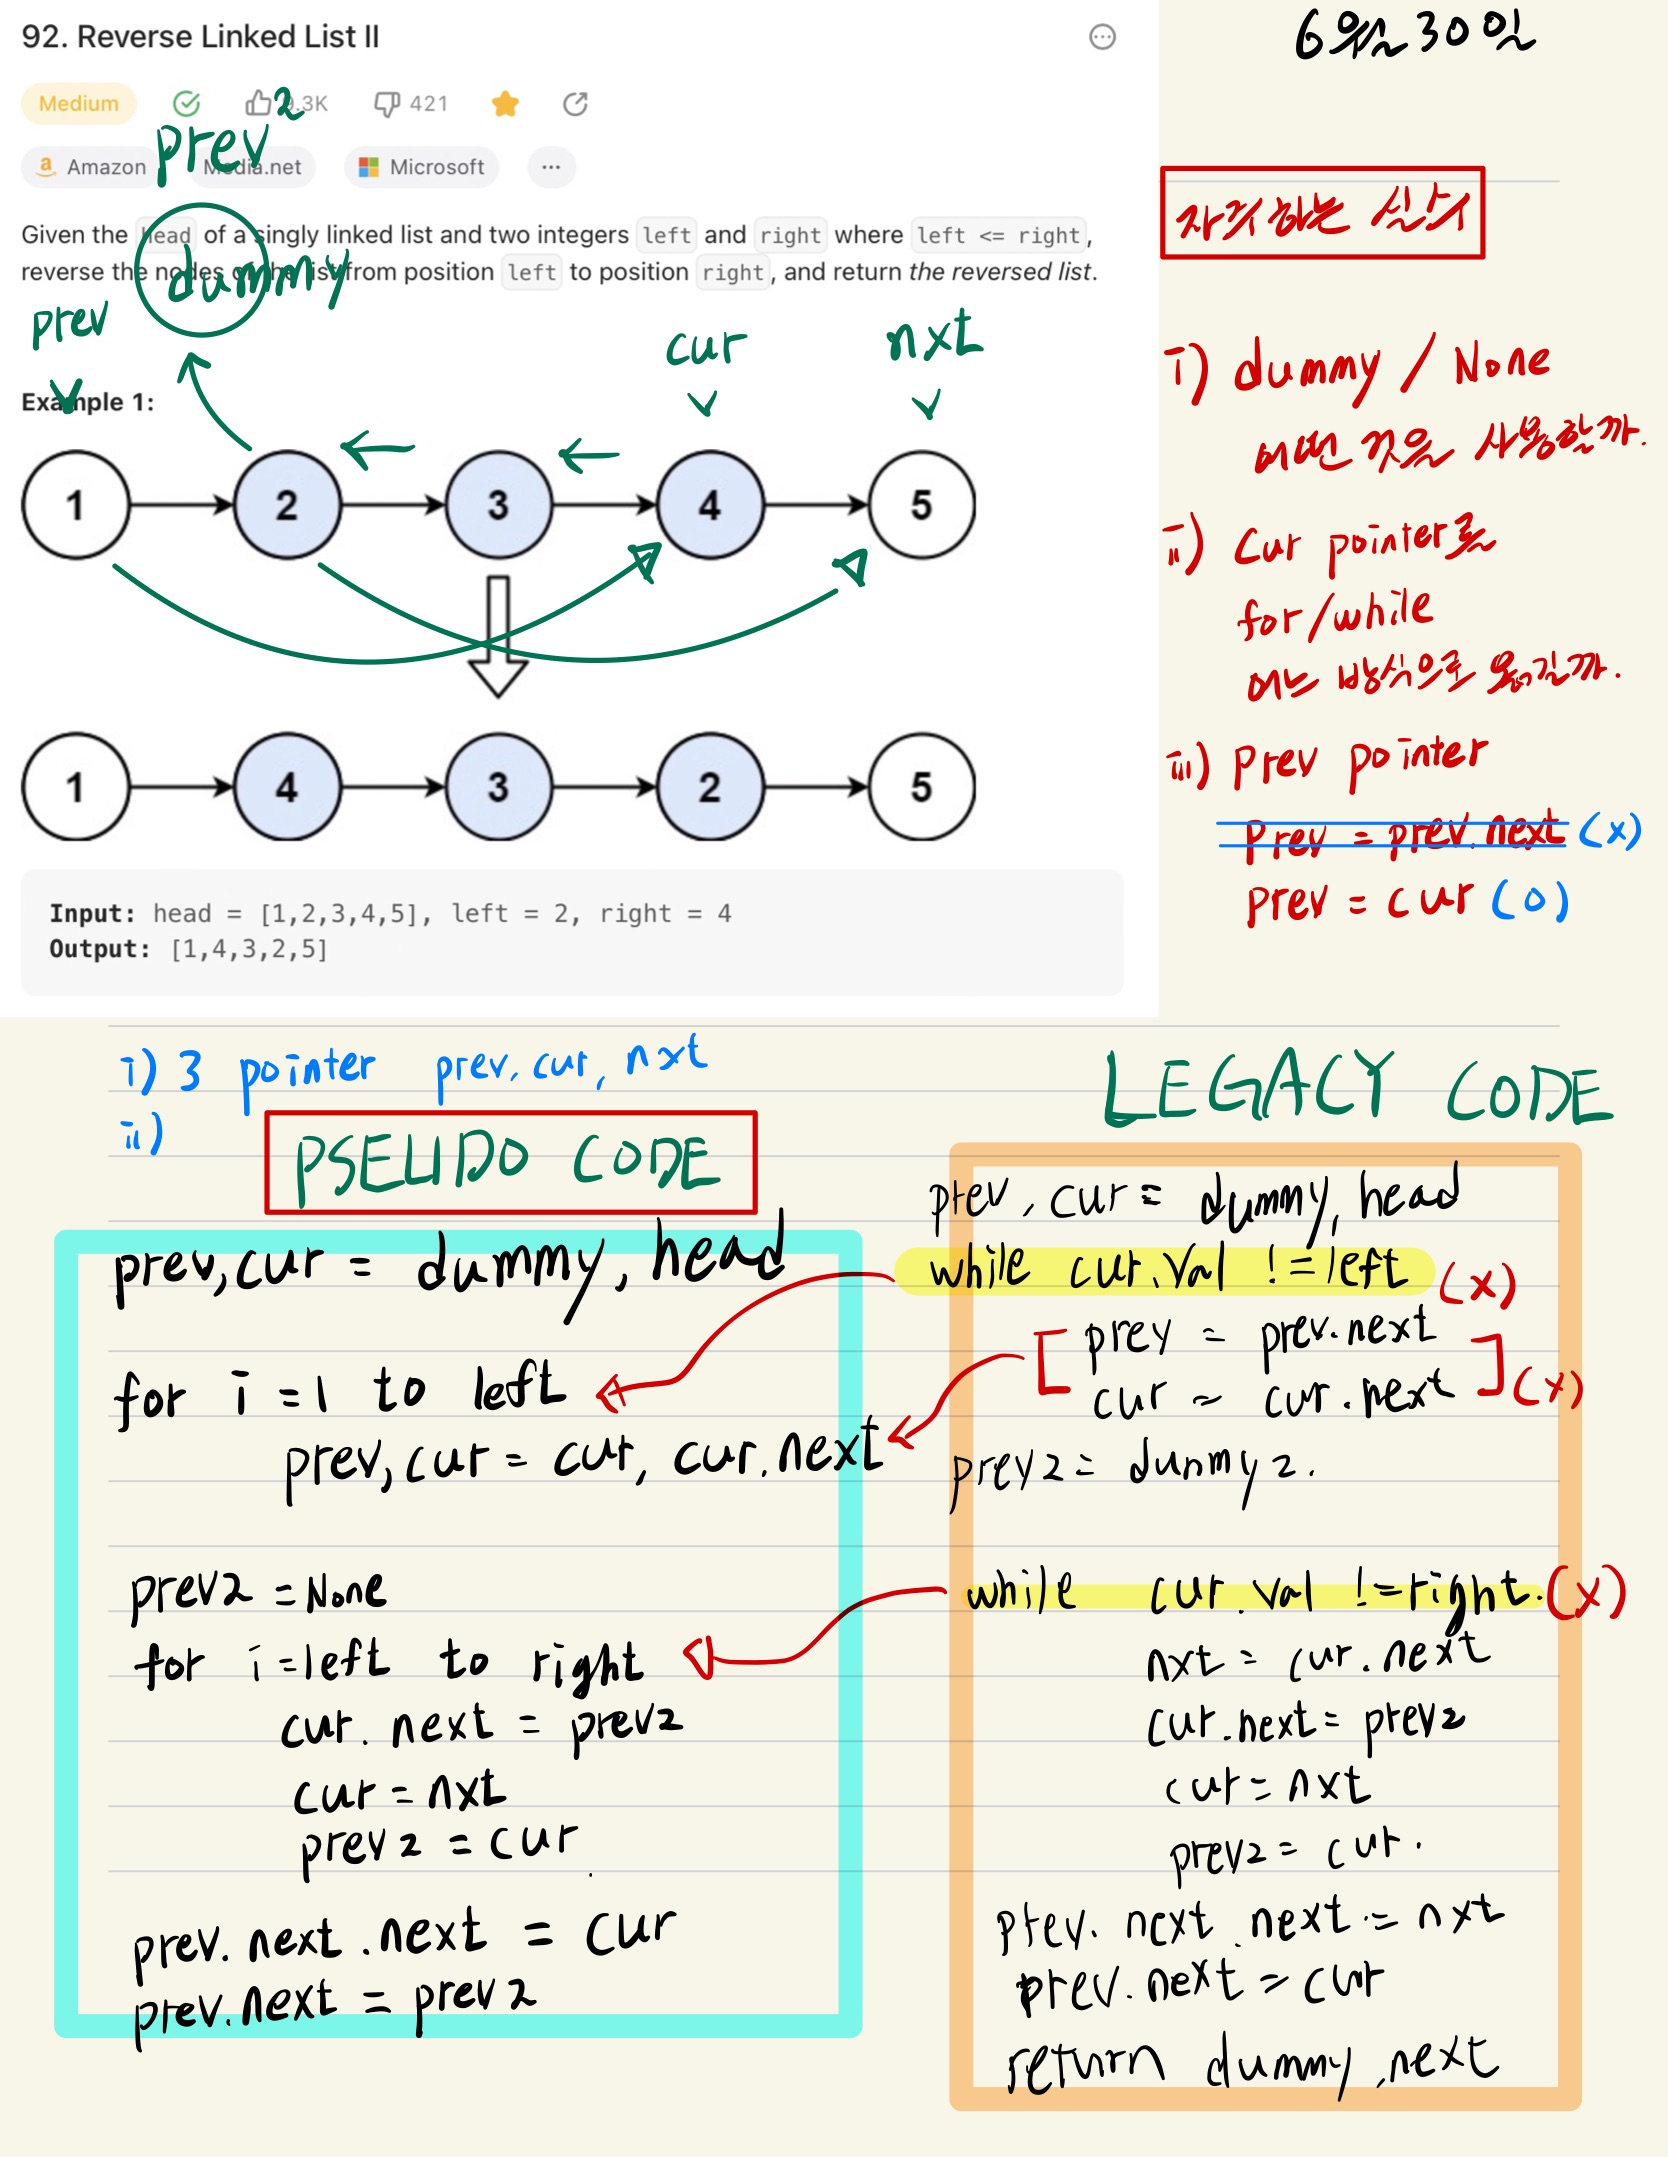 92. Reverse Linked List II
6월 30일
Medium
9.3K
421
prev2
Amazon
Media.net
Microsoft
Given the head of a singly linked list and two integers left and right where left <= right,
reverse the nodes of the list from position left to position right, and return the reversed list.
dummy
prev
cur
nxt
Example 1:
1 2 3 4 5
1 4 3 2 5
Input: head = [1,2,3,4,5], left = 2, right = 4
Output: [1,4,3,2,5]
하는 실수
i) dummy / None
어떤 것을 사용할까.
ii) Cur pointer를
for/while
어느 방식으로 옮길까.
iii) Prev pointer
Prev = prev.next (X)
prev = cur (O)
i) 3 pointer prev, cur, nxt
ii)
PSEUDO CODE
prev, cur = dummy, head
for i = 1 to left
prev, cur = cur, cur.next
prev2 = None
for i = left to right
cur.next = prev2
cur = nxt
prev2 = cur
prev.next.next = cur
prev.next = prev2
LEGACY CODE
prev, cur = dummy, head
while cur.val != left (X)
[ prev = prev.next
cur = cur.next ] (X)
prev2 = dummy2.
while cur.val != right. (X)
nxt = cur.next
cur.next = prev2
cur = nxt
prev2 = cur.
prev.next.next = nxt
prev.next = cur
return dummy.next